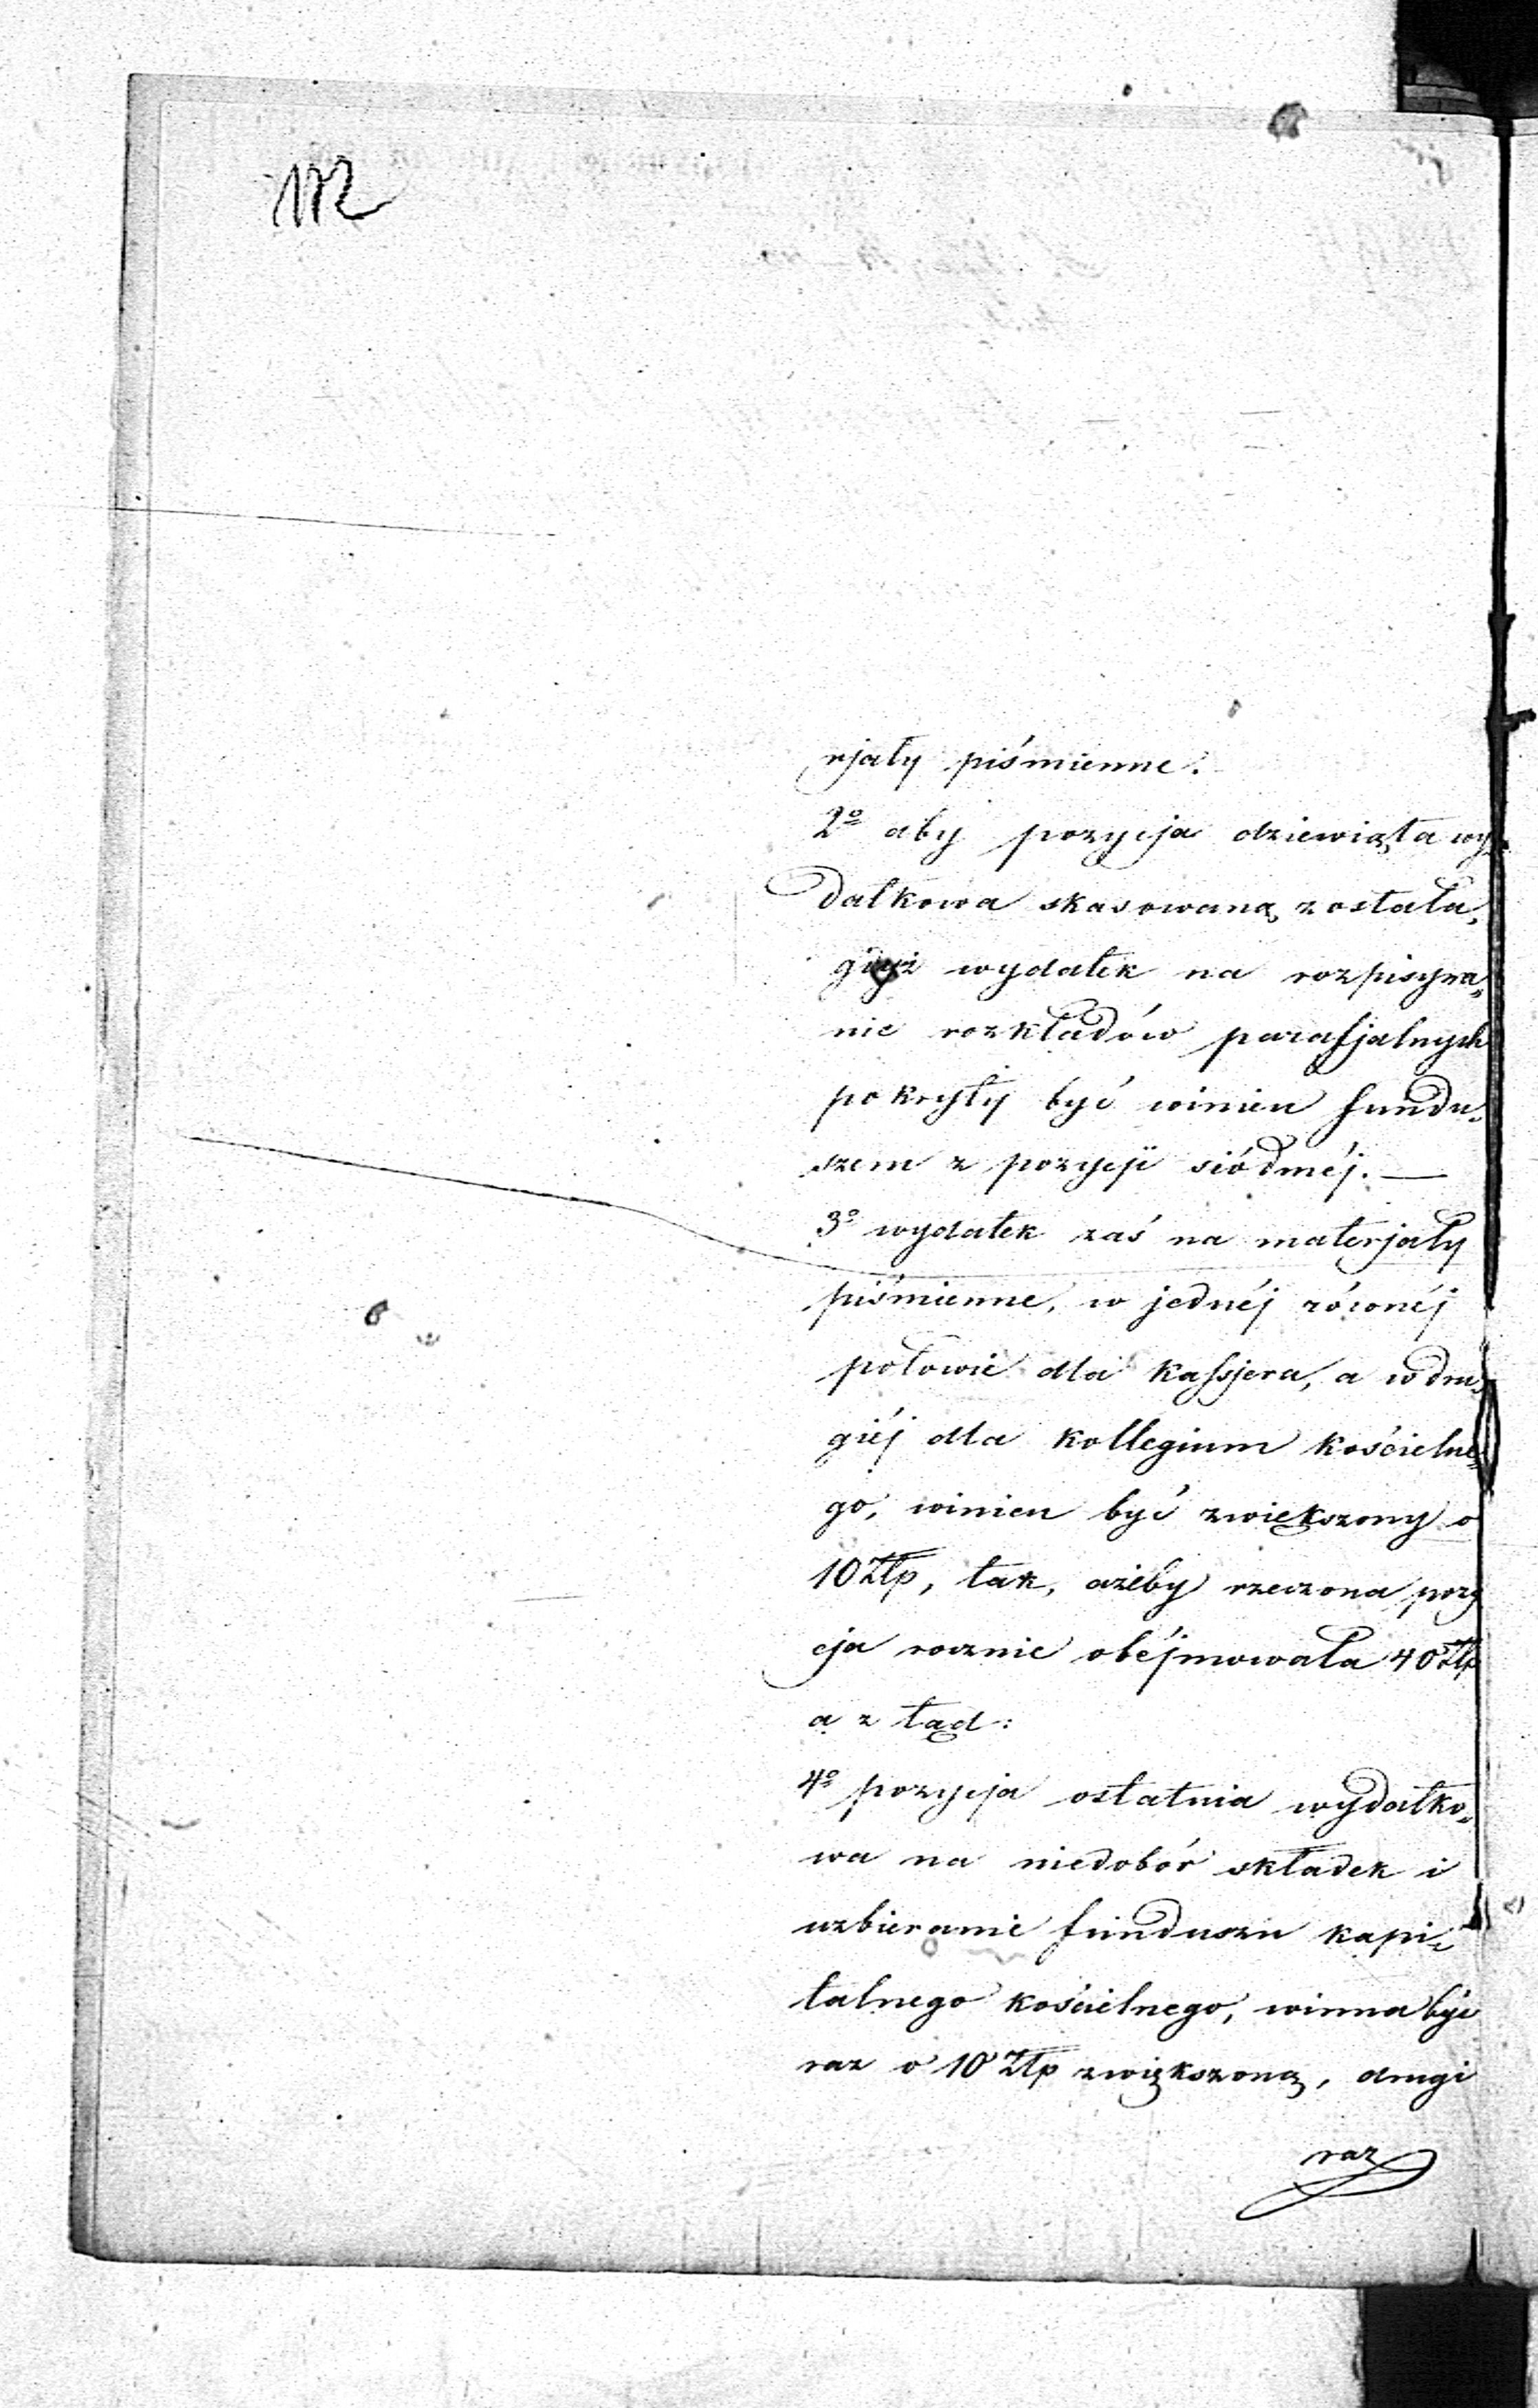 172
rjały piśmienne.
2º aby pozycja dziewiąta wy-
datkowa skasowaną została,
gdyż wydatek na rozpisywa„
nie rozkładów parafjalnych
pokryty być winien fundu„
szem z pozycji siódméj. —
3º wydatek zaś na materjały
piśmienne, w jednéj równéj
połowie dla kassjera, a w dru„
giéj dla kollegium kościelne„
go, winien być zwiększony o
10 Złp, tak, ażeby rzeczona pozy
cja rocznie obéjmowała 40 Złp
a z tąd:
4º pozycja ostatnia wydatko„
wa na niedobór składek i
uzbieranie funduszu kapi„
talnego kościelnego, winna być
raz o 10 Złp zwiększoną, drugi
raz